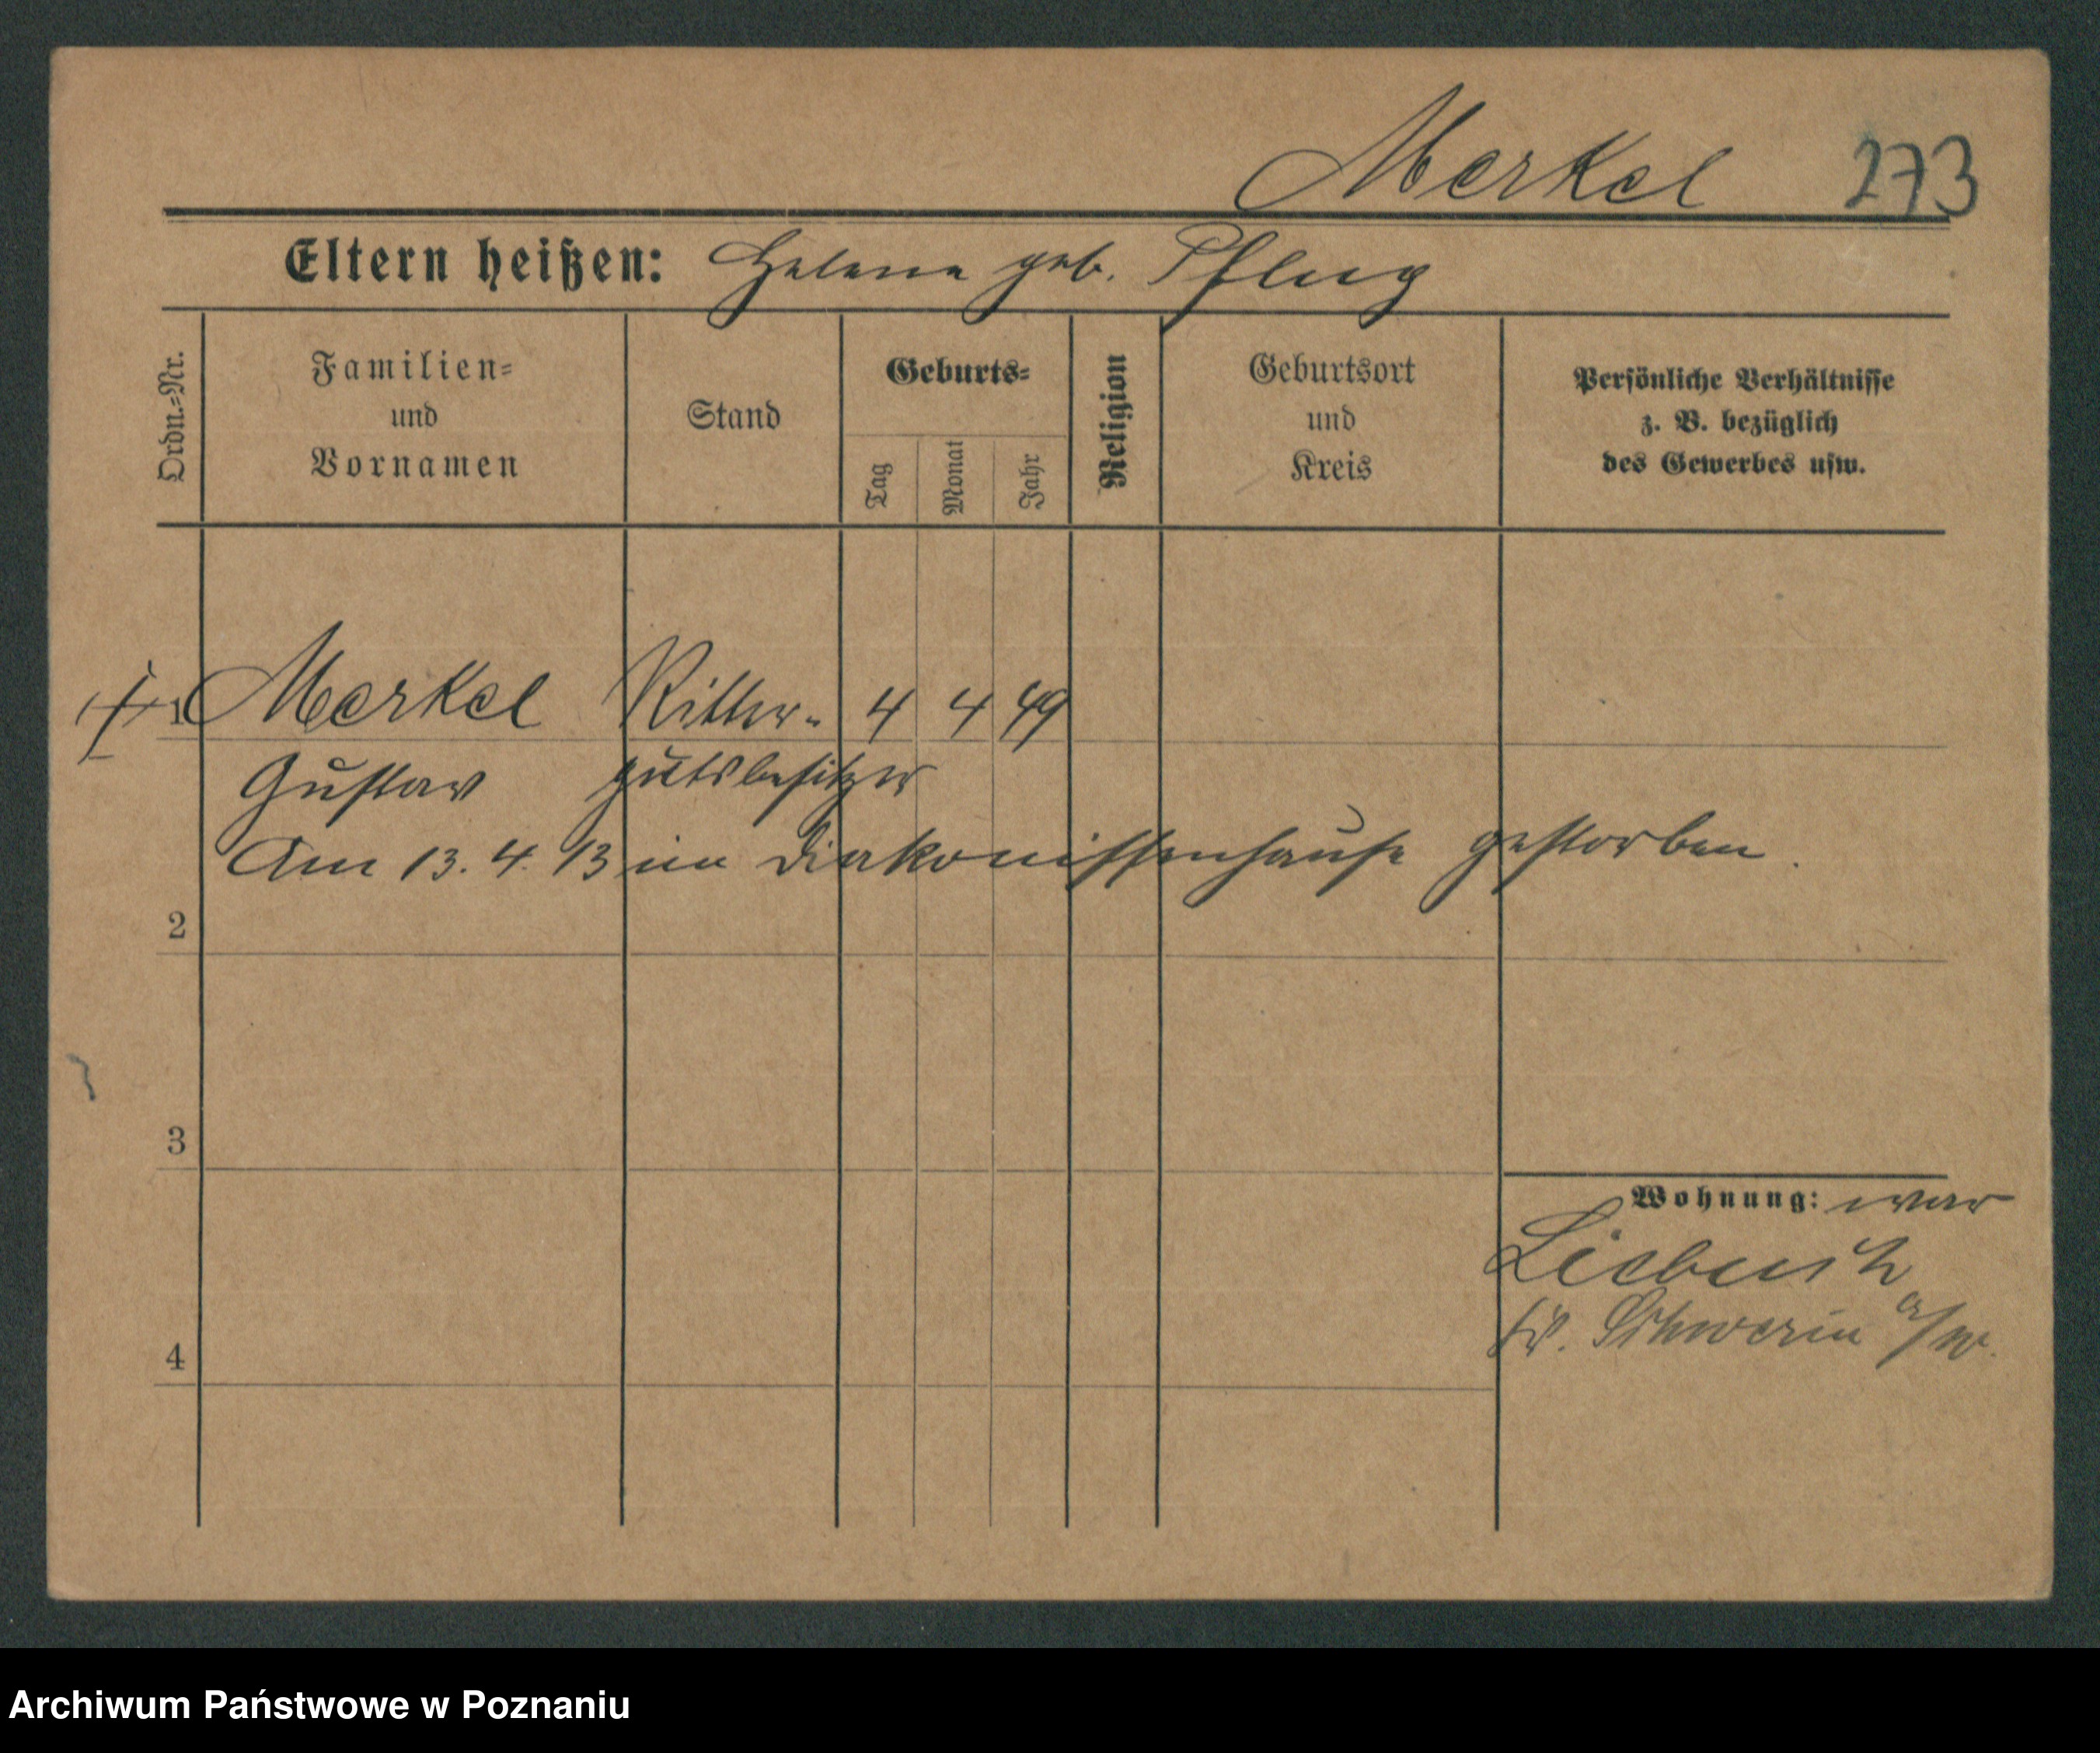 Merkel 273
Eltern heißen: Helena geb. Pflug
Ordn.=Nr.
Familien=
und
Vornamen
Stand
Geburts=
Tag
Monat
Jahr
Religion
Geburtsort
und
Kreis
Persönliche Verhältnisse
z. B. bezüglich
des Gewerbes usw.
1 Merkel Ritter= 4 4 49
Gustav gutsbesitzer
Am 13. 4. 13 im Diakonissenhause gestorben.
2
3
Wohnung: war
Liebuch
Schwerin a/W.
4
Archiwum Państwowe w Poznaniu